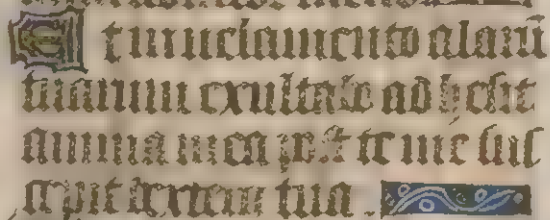 Et in uelamento alarū
tuarum exultabo adhesit
anima mea post te me sus
cepit dextera tua